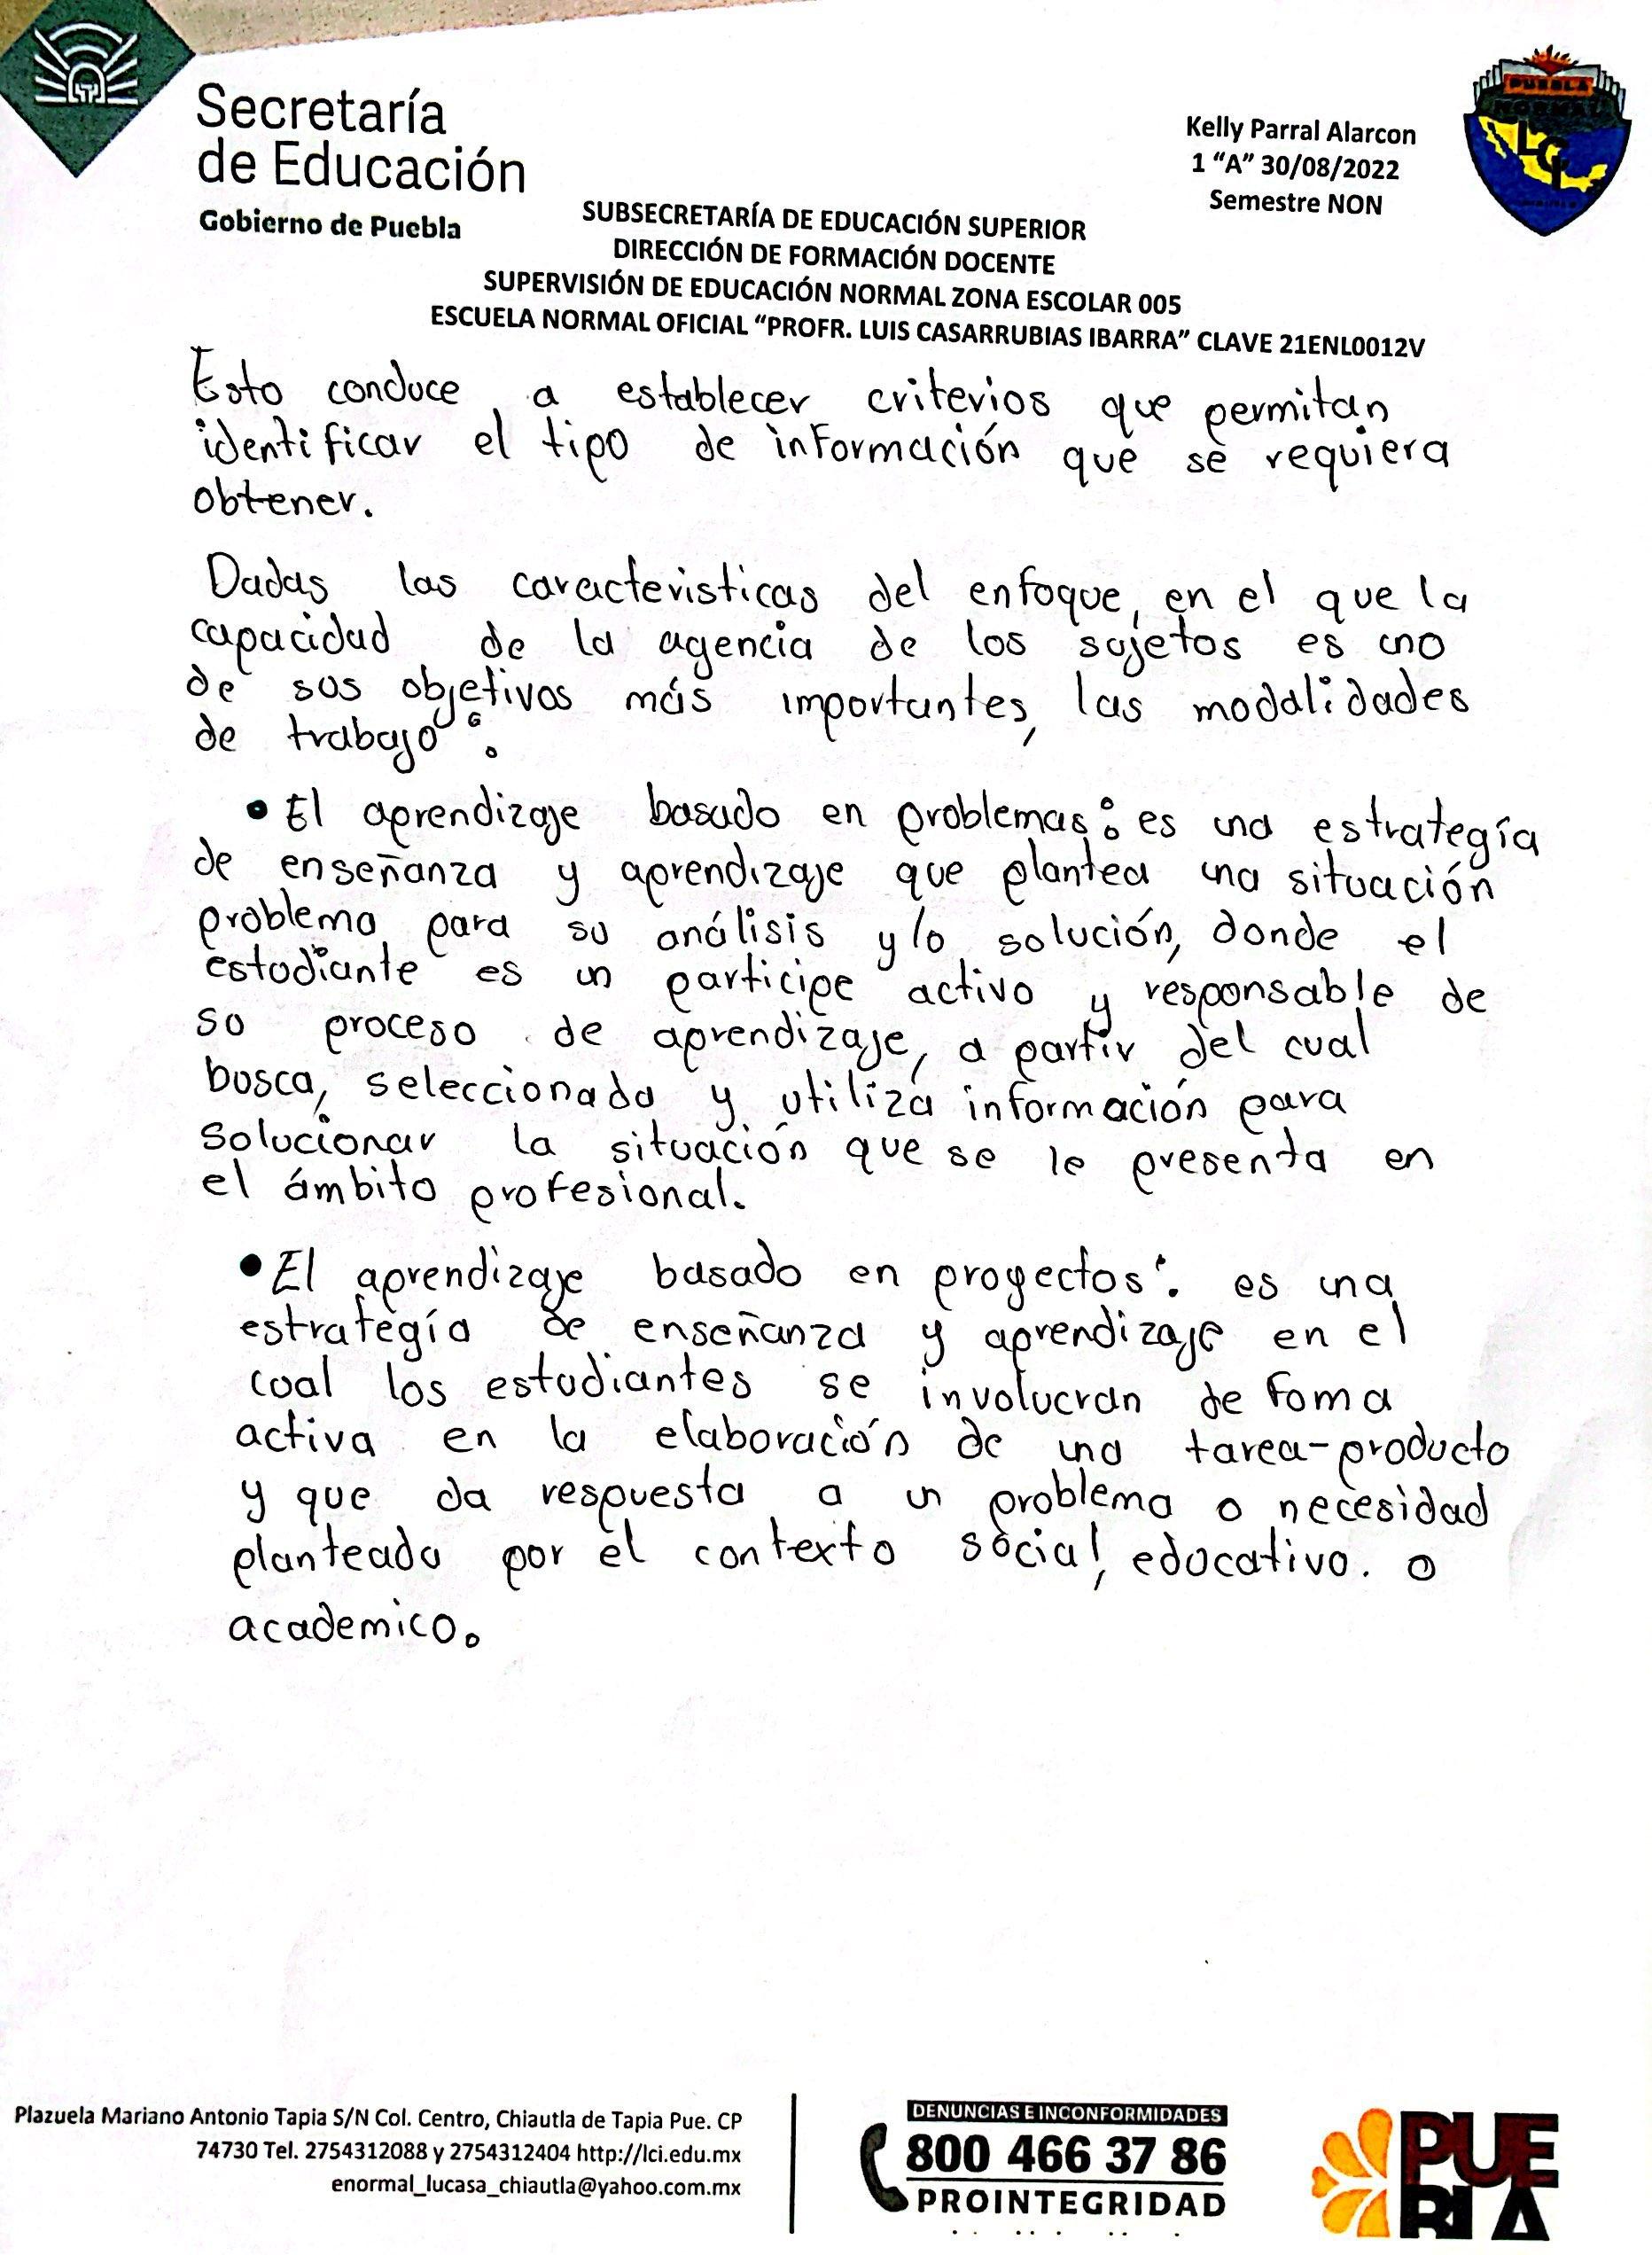 Secretaría
de Educación
Gobierno de Puebla
Kelly Parral Alarcon
1 “A” 30/08/2022
Semestre NON
PUEBLA
NORMAL
LCI
SUBSECRETARÍA DE EDUCACIÓN SUPERIOR
DIRECCIÓN DE FORMACIÓN DOCENTE
SUPERVISIÓN DE EDUCACIÓN NORMAL ZONA ESCOLAR 005
ESCUELA NORMAL OFICIAL “PROFR. LUIS CASARRUBIAS IBARRA” CLAVE 21ENL0012V
Esto conduce a establecer criterios que permitan
identificar el tipo de información que se requiera
obtener.
Dadas las caracteristicas del enfoque, en el que la
capacidad de la agencia de los sujetos es uno
de sus objetivos más importantes, las modalidades
de trabajo:
• El aprendizaje basado en problemas: es una estrategía
de enseñanza y aprendizaje que plantea una situación
problema para su análisis y/o solución, donde el
estudiante es un participe activo y responsable de
su proceso de aprendizaje, a partir del cual
busca, seleccionada y utiliza información para
solucionar la situación que se le presenta en
el ámbito profesional.
• El aprendizaje basado en proyectos: es una
estrategía de enseñanza y aprendizaje en el
cual los estudiantes se involucran de foma
activa en la elaboración de una tarea-producto
y que da respuesta a un problema o necesidad
planteada por el contexto social, educativo. o
academico.
Plazuela Mariano Antonio Tapia S/N Col. Centro, Chiautla de Tapia Pue. CP
74730 Tel. 2754312088 y 2754312404 http://lci.edu.mx
enormal_lucasa_chiautla@yahoo.com.mx
DENUNCIAS E INCONFORMIDADES
800 466 37 86
PROINTEGRIDAD
PUE
BLA